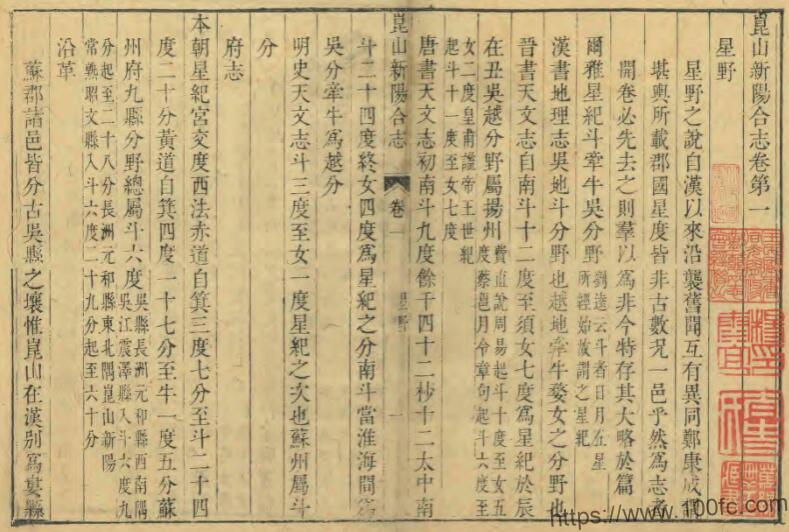 崑山新陽合志卷第一
星野
星野之說自漢以來沿襲舊聞互有異同鄭康成謂
堪輿所載郡國星度皆非古數况一邑乎然爲志者
開卷必先去之則羣以爲非今特存其大略於篇
爾雅星紀斗牽牛吳分野劉逵云斗者日月五星
所經始故謂之星紀
漢書地理志吳地斗分野也越地牽牛婺女之分野也
晉書天文志自南斗十二度至須女七度爲星紀於辰
在丑吳越分野屬揚州費直說周易起斗十度至女五
度蔡邕月令章句起斗六度至
女二度皇甫謐帝王世紀
起斗十一度至女七度
唐書天文志初南斗九度餘千四十二杪十二太中南
崑山新陽合志
卷一
星野
一
斗二十四度終女四度爲星紀之分南斗當淮海間爲
吳分牽牛爲越分
明史天文志斗三度至女一度星紀之次也蘇州屬斗
分
府志
本朝星紀宮交度西法赤道自箕三度七分至斗二十四
度二十分黃道自箕四度一十七分至牛一度五分蘇
州府九縣分野總屬斗六度吳縣長洲元和縣西南隅
吳江震澤縣入斗六度九
分起至二十八分長洲元和縣東北隅崑山新陽
常熟昭文縣入斗六度二十九分起至六十分
沿革
蘇郡諸邑皆分古吳縣之壤惟崑山在漢別爲婁縣
https://www.100fc.com